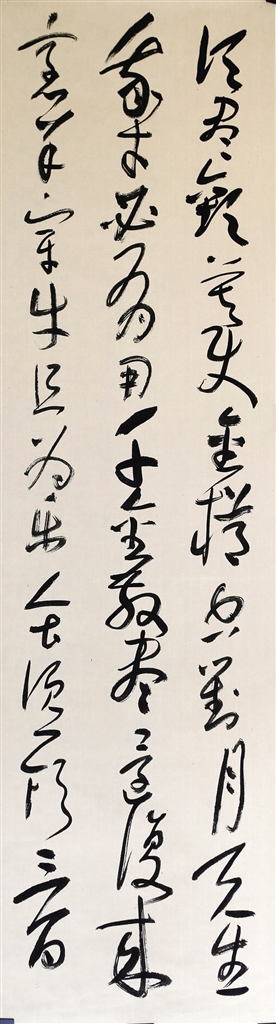 須盡歡莫使金樽空對月天生
我才必有用千金散盡還復來
烹羊宰牛且為樂會須一飲三百